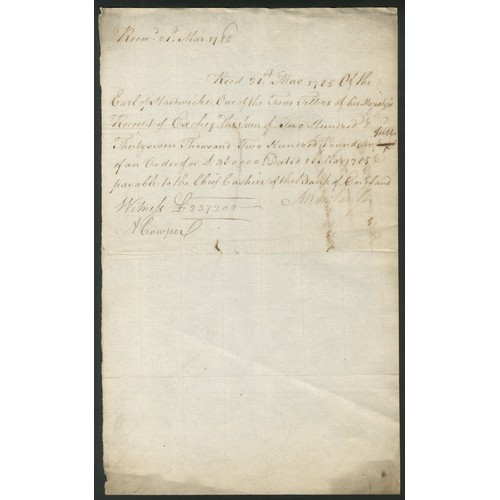 21st Mar. 1785
Recd 21st Mar. 1785 Of the
Earl of Hardwicke One of the Four Tellers of his Majestys
Receipt of Excheqr the Sum of Two Hundred &
Thirtyseven Thousand Two Hundred Pounds in full
of an Order for £ 360000 Dated 1785
payable to the Chief Cashier of the Bank of England
Witness £ 237200
A Cowper